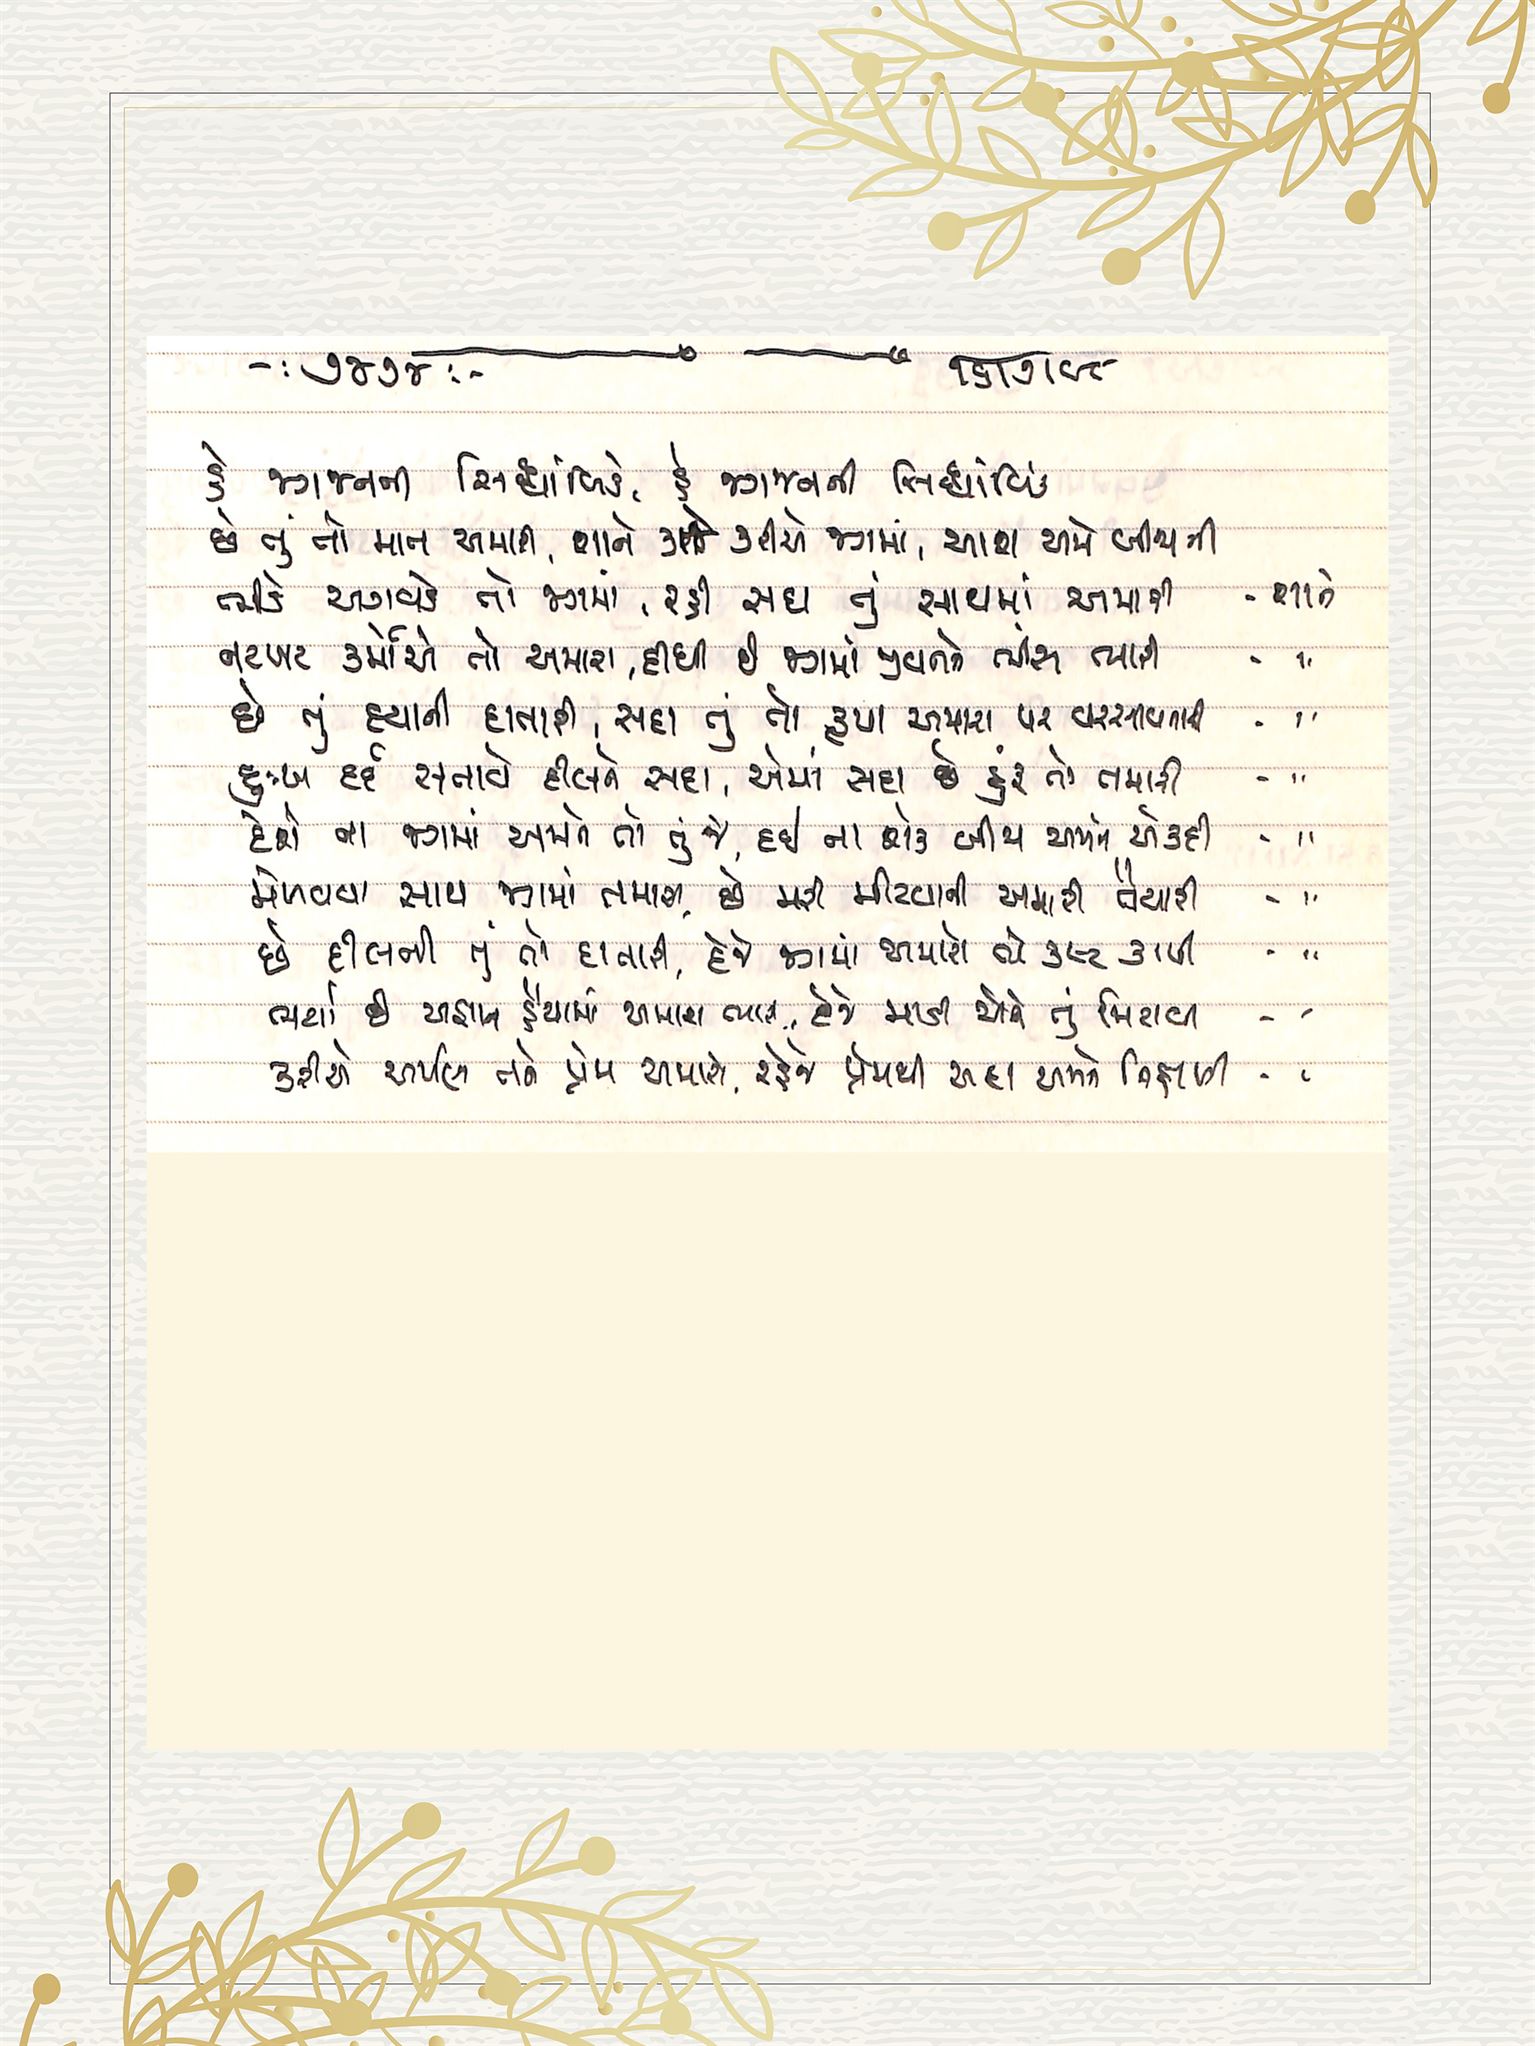 -: ૭૪૭૪ :-
હે જગજનની સિધ્ધાંબિકે, હે જગજનની સિધ્ધાંબિકે
છે તું તો માત અમારી, શાને કરીએ જગમાં, આશ અમે બીજાની
ભીડે અગવડે તો જગમાં, રહી સદા તું સાથમાં અમારી - શાને
નટખટ કર્મોએ તો અમારા, દીધી છે જગમાં જીવનને ભીંસ ભારી - "
છે તું દયાની દાતારી, સદા તું તો કૃપા અમારા પર વરસાવનારી - "
દુઃખ દર્દ સતાવે દીલને સદા, એમાં સદા છે હુંફ તો તમારી - "
દેશે ના જગમાં અમને તો તું જે, દઈ ના શકે બીજા અમને એ કદી - "
મેળવવા સાથ જગમાં તમારો, છે મરી મીટવાની અમારી તૈયારી - "
છે દીલની તું તો દાતારી, દેજે જગમાં અમારો ભે કષ્ટ કાપી - "
ભર્યા છે અજ્ઞાન હૈયામાં અમારા ભારી, દેજે માડી એને તું મિટાવી - "
કરીએ અર્પણ તને પ્રેમ અમારો, રહેજે પ્રેમથી સદા અમને નિહાળી - "